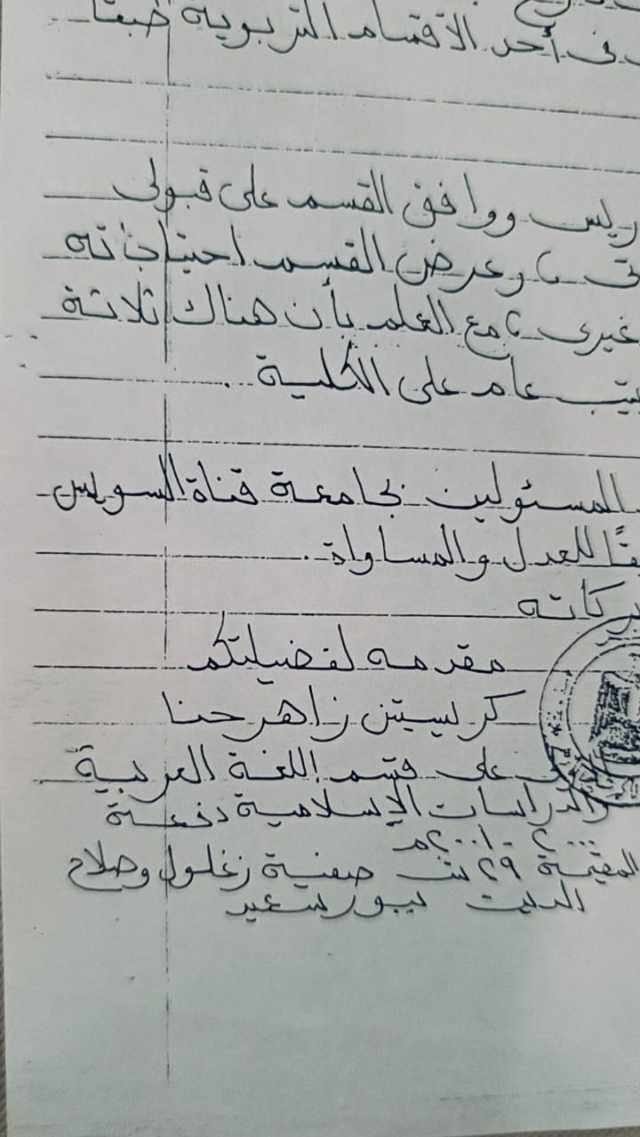 فى أحد الأقسام التربوية طبقًا
ريس ووافق القسم على قبولى
تى، وعرض القسم احتياجاته
غيرى، مع العلم بأن هناك ثلاثة
عام على الكلية.
المسئولين بجامعة قناة السويس
قًا للعدل والمساواة.
بركاته
مقدمه لفضيلتكم
كريستين زاهر حنا
على قسم اللغة العربية
والدراسات الإسلامية دفعة
٢٠٠٠ - ٢٠٠١م
المقيمة ٢٩ ش صفية زغلول وصلاح
الدين ببورسعيد